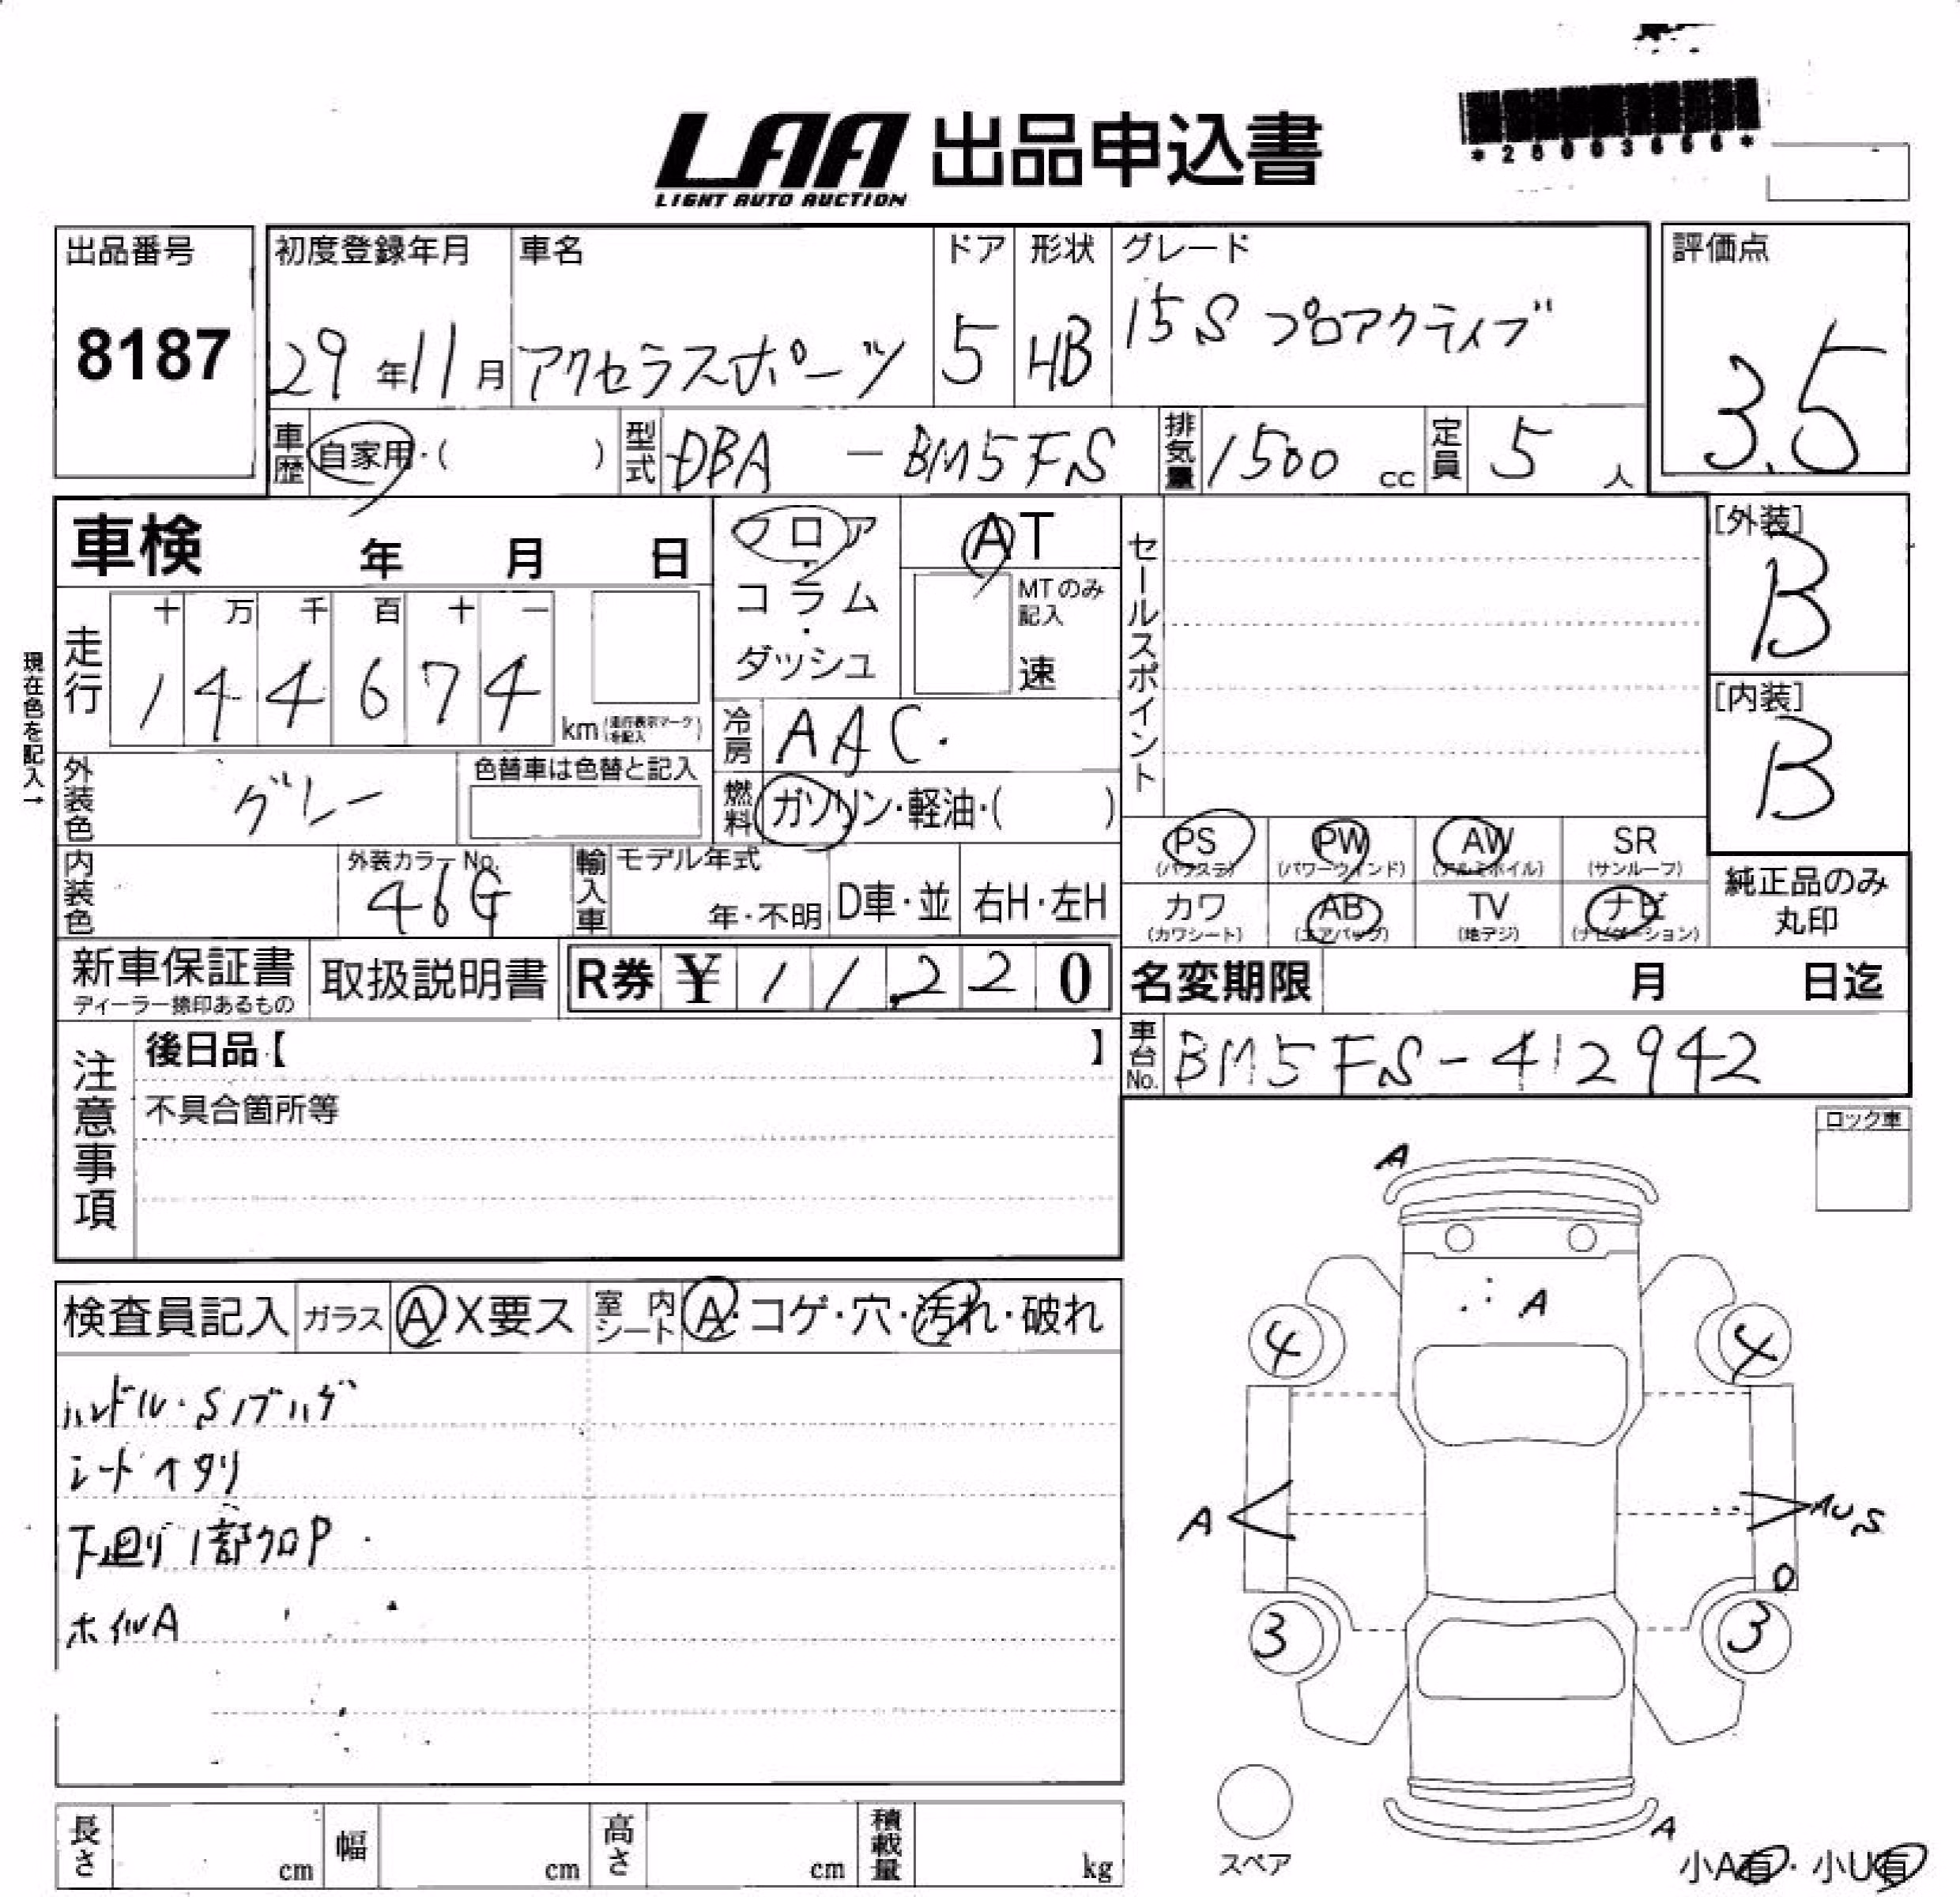 LAA 出品申込書
LIGHT AUTO AUCTION
*26003656*
出品番号
8187
初度登録年月
29年11月
車名
アクセラスポーツ
ドア
5
形状
HB
グレード
15S プロアクティブ
評価点
3.5
車歴
自家用・( )
型式
DBA - BM5FS
排気量
1500 cc
定員
5人
車検 年 月 日
フロア・コラム・ダッシュ
AT
MTのみ記入
速
セールスポイント
[外装]
B
[内装]
B
現在色を記入→
走行
十 万 千 百 十 一
1 4 4 6 7 4
km (走行表示マークを記入)
冷房
AAC.
外装色
グレー
色替車は色替と記入
燃料
ガソリン・軽油・( )
内装色
外装カラーNo.
46G
輸入車
モデル年式
年・不明
D車・並
右H・左H
PS (パワステ)
PW (パワーウインド)
AW (アルミホイル)
SR (サンルーフ)
カワ (カワシート)
AB (エアバッグ)
TV (地デジ)
ナビ (ナビゲーション)
純正品のみ
丸印
新車保証書
ディーラー捺印あるもの
取扱説明書
R券 ¥ 11,220
名変期限 月 日迄
車台No.
BM5FS-412942
注意事項
後日品【 】
不具合箇所等
ロック車
検査員記入
ガラス
A X要ス
室内シート
A・コゲ・穴・汚れ・破れ
ハンドル・Sノブハゲ
シートヘタリ
下廻り1部クロP
ホイルA
A
A
4
4
A
3
3
A
スペア
小A有・小U有
長さ cm
幅 cm
高さ cm
積載量 kg